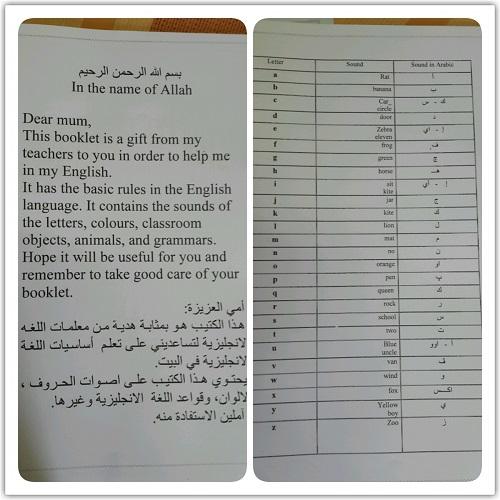 بسم الله الرحمن الرحيم
In the name of Allah
Dear mum,
This booklet is a gift from my
teachers to you in order to help me
in my English.
It has the basic rules in the English
language. It contains the sounds of
the letters, colours, classroom
objects, animals, and grammars.
Hope it will be useful for you and
remember to take good care of your
booklet.
أمي العزيزة:
هذا الكتيب هو بمثابة هدية من معلمات اللغة
الانجليزية لتساعديني على تعلم أساسيات اللغة
لانجليزية في البيت.
يحتوي هذا الكتيب على اصوات الحروف ،
لالوان، وقواعد اللغة الانجليزية وغيرها.
آملين الاستفادة منه.
Letter Sound Sound in Arabic
a Rat أ
b banana ب
c Car_ ك - س
circle
d door د
e Zebra إ - اي
eleven
f frog ف
g green ج
h horse هـ
i sit إ - أي
kite
j jar ج
k kite ك
l lion ل
m mat م
n no ن
o orange او
p pen پ
q queen ك
r rock ر
s school س
t two ت
u Blue أ - اوو
uncle
v van ف
w wind و
x fox اكس
y Yellow ي
boy
z Zoo ز